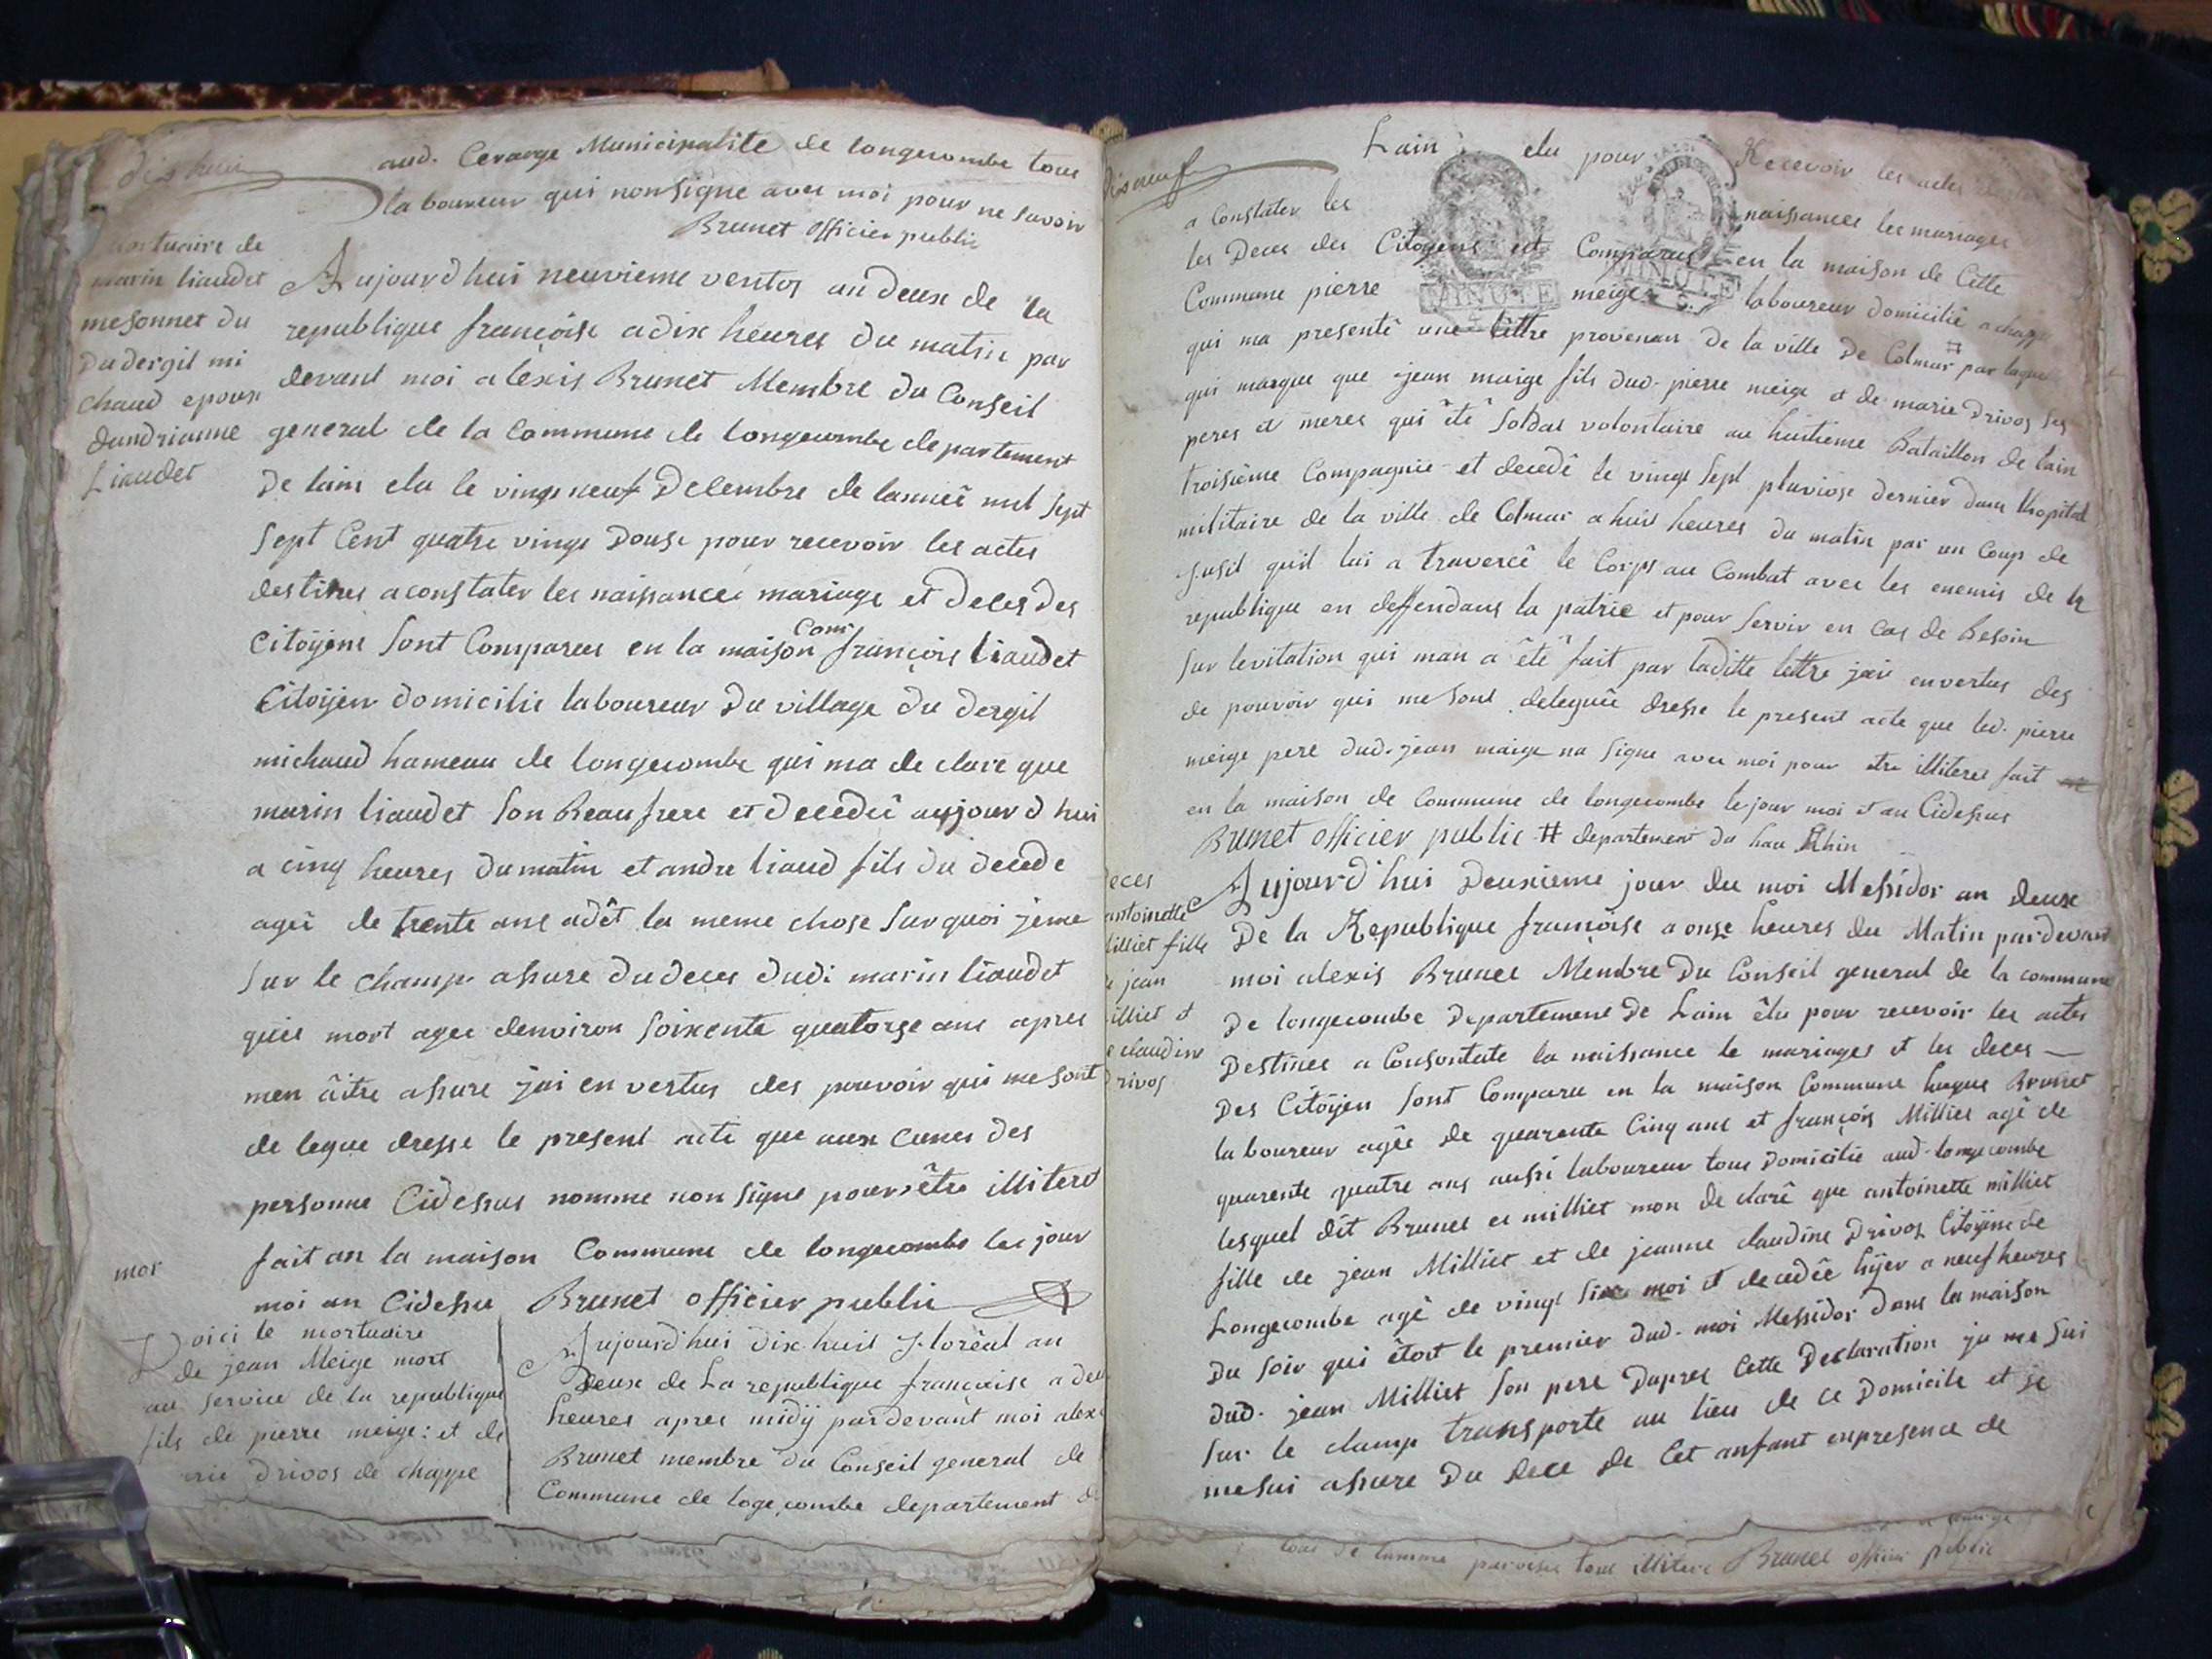 dix huit
aud. Cerarge Municipalite de longecombe tous
laboureur qui nonsigne avec moi pour ne savoir
Brunet officier public
mortuaire de
marin liaudet
mesonnet du
du dergil mi
chaud epoux
dandrianne
Liaudet
Aujourdhui neuvieme ventos an deux de la
republique françoise a dix heures du matin par
devant moi alexis Brunet Membre du Conseil
general de la Commune de longecombe departement
De lain elu le vingt neuf Decembre de lanneê mil sept
sept Cent quatre vingt Douse pour recevoir les actes
destines a constater les naissances mariage et deces des
Citoÿens sont Comparus en la maison Com françois liaudet
Citoÿen domicilie laboureur Du village du dergil
michaud hameau de longecombe qui ma de clare que
marin liaudet son Beaufrere et decedeê aujourd hui
a cinq heures dumatin et andre liaud fils du decede
ageê de trente ans adêt la meme chose surquoi jeme
sur le champ assure dudeces dudi marin liaudet
quis mort agee denviron soixente quatorze ans apres
men âitre assure jai en vertus des pouvoir qui me sont
de legue dresse le present acte que aux cunes des
personne Cidessus nomme non signe pour être illiterd
fait an la maison Commune de longecombe les jour
moi an Cidessu Brunet officier public
mor
Voici le mortuaire
de jean Meige mort
au service de la republique
fils de pierre meige: et de
drivos de chappe
Aujourdhui dix huit floréal an
Deux de La republique francaise a deu
heures apres midÿ pardevant moi alex
Brunet membre du Conseil general de
Commune de loge,combe departement d
dixneuf
Lain elu pour Recevoir les actes
a Constater les naissances les mariages
les Deces des Citoyens est Comparus en la maison de Cette
Commune pierre meige laboureur domicilié a
MINUTE
MINUTE
qui ma presenté une lettre provenan De la ville De Colmar # par laque
qui marque que jean maige fils dud. pierre meige et de marie Drivos ses
peres et meres qui êtê soldat volontaire au huitieme Bataillon de lain
troisième Compagnie et decedê le vingt sept pluviose dernier dans lhopital
militaire de la ville de Colmar a huit heures du matin par un Coup de
fusil quil lui a traversê le Corps au Combat avec les enemis de la
republique en deffendans la patrie et pour servir en Cas de Besoin
sur levitation qui man a êtê fait par laditte lettre jai envertus des
de pouvoir qui me sont deleguêe dresse le present acte que led. pierre
meige pere dud. jean maige na signe avec moi pour etre illiteres fait
en la maison de Commune de longecombe le jour moi et an Cidessus
Brunet officier public # departement du hau Rhin
deces
antoinette
Milliet fille
de jean
milliet et
de claudine
Drivos
Aujourd'hui Deuxieme jour du moi Messidor an deux
De la Republique françoise a onse heures du Matin pardevan
moi alexis Brunet Membre Du Conseil general de la commune
De longecombe Departement De Lain êlu pour recevoir les actes
Destines a Consontate la naissance le mariages et les deces
Des Citoÿen sont Comparu en la maison Commune hugue Brunet
laboureur agêe de quarente Cinq ans et françois Milliet agê de
quarente quatre ans aussi laboureur tous Domicilie aud. longecombe
lesquel dit Brunet et milliet mon de clarê que antoinette milliet
fille de jean Milliet et de jeanne claudine Drivos Citoÿene de
Longecombe agê de vingt six moi et decedêe hÿer a neuf heures
Du soir qui êtoit le premier dud. moi Messidor dans la maison
Dud. jean Milliet son pere Dapres Cette Declaration ju me sui
sur le clamp transporte au lieu de Ce Domicile et je
mesui assure Du Dece De Cet anfant enpresence de
tous de lamême paroisse tous illitere Brunet officier public